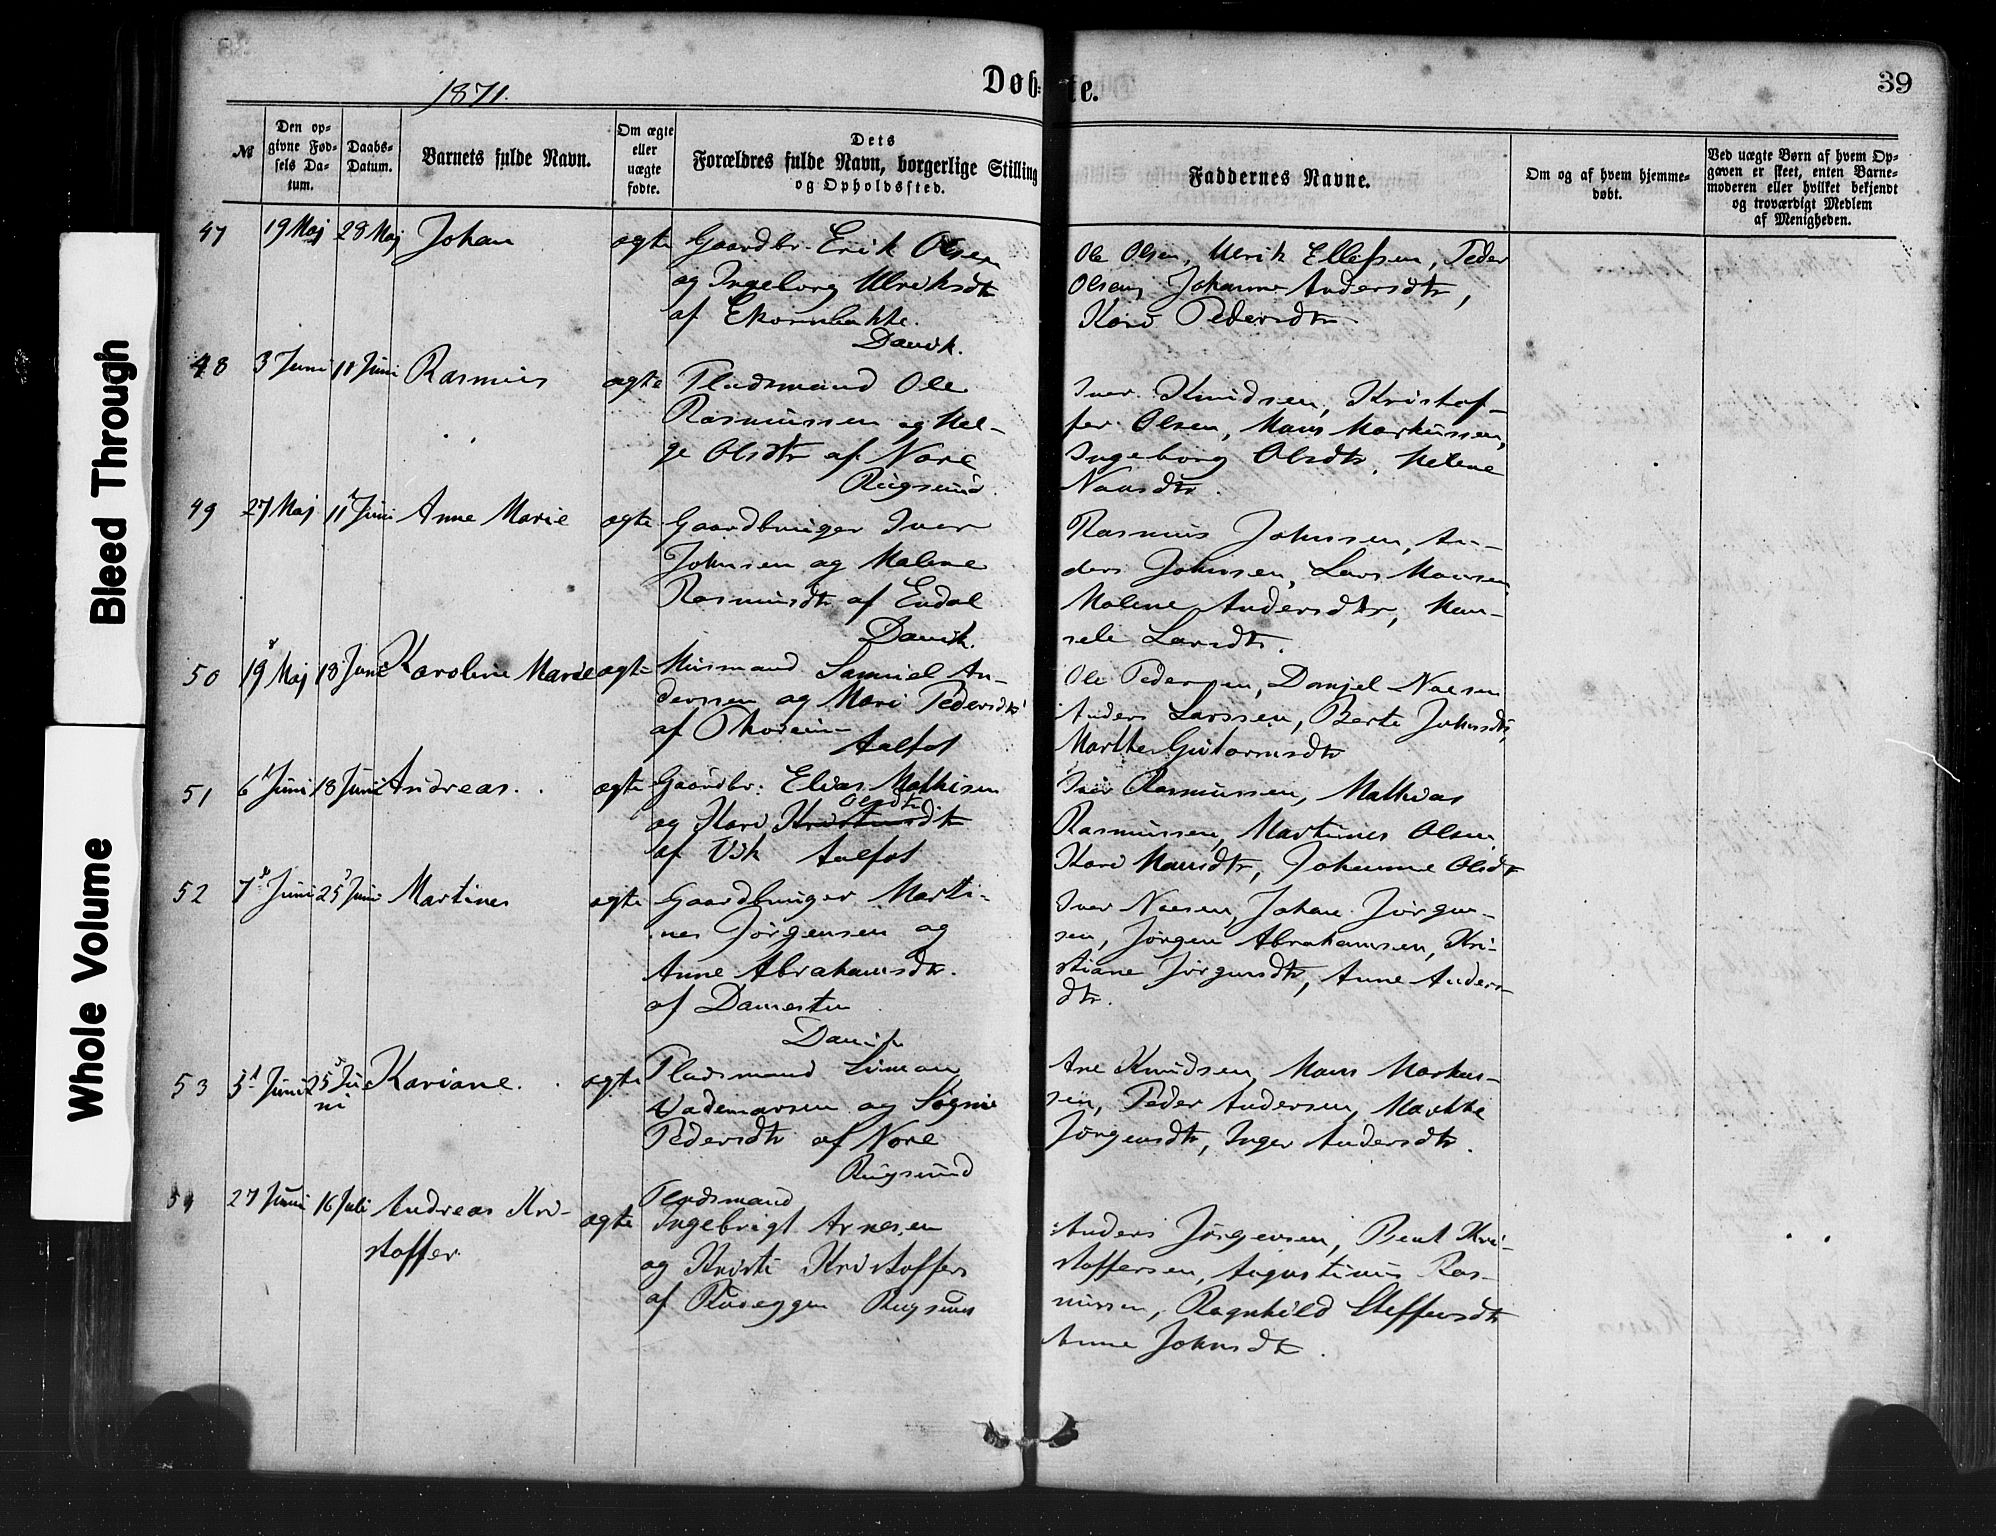 Bleed Through
Whole Volume
1871.
Døb=
te.
39
№
Den op-
givne Fød-
sels Da-
tum.
Daabs-
Datum.
Barnets fulde Navn.
Om ægte
eller
uægte
fødte.
Dets
Forældres fulde Navn, borgerlige Stilling
og Opholdssted.
Faddernes Navne.
Om og af hvem hjemme-
døbt.
Ved uægte Børn af hvem Op-
gaven er skeet, enten Barne-
moderen eller hvilket bekjendt
og troværdigt Medlem
af Menigheden.
47 19 Maj 28 Maj Johan ægte Gaardbr. Erik Olsen
og Ingeborg Ulriksdtr
af Ekornbakke.
Davik.
Ole Olsen, Ulrik Ellefsen, Peder
Olsen, Johanne Andersdtr,
Kari Pedersdtr
48 3 Juni 11 Juni Rasmus ægte Pladsmand Ole
Rasmussen og Hel-
ge Olsdtr af Nore
Rugsund.
Iver Knudsen, Kristof-
fer Olsen, Mons Markussen,
Ingeborg Olsdtr, Helene
49 27 Maj 11 Juni Anne Marie ægte Gaardbruger Iver
Johnsen og Malene
Rasmusdtr af Endal
Davik.
Rasmus Johnsen, An-
ders Johnsen, Lars Monsen
Malene Andersdtr,
Larsdtr.
50 19 Maj 18 Juni Karoline Marie ægte Husmand Samuel An-
derssen og Mari Pedersdtr
af
Aalfot
Ole Pedersen, Danjel
Anders Larssen, Berte Johnsdtr,
Marthe Gutormsdtr
51 6 Juni 18 Juni Andreas. ægte Gaardbr: Elias Mathisen
Olsdtr
og Kari Kristensdtr
af Vik Aalfot
Iver Rasmussen, Mathias
Rasmussen, Martines Olsen
Kari Hansdtr, Johanne Olsdtr
52 7 Juni 25 Juni Martines ægte Gaardbruger Marti-
nes Jørgensen og
Anne Abrahamsdtr.
af Damesten
Davik
Iver Johan Jørgen-
sen, Jørgen Abrahamsen, Kri-
stiane Jørgensdtr, Anne Anders-
dtr.
53 Juni 25 Ju Kariane. ægte Pladsmand Simon
ni
Vademarsen og Søgni
Pedersdtr af Nore
Rugsund
Are Knudsen, Mons Markus-
sen, Peder Andersen, Marthe
Jørgensdtr, Inger Andersdtr.
54 27 Juni 16 Juli Andreas Kri- ægte Pladsmand
stoffer.
Ingebrigt Arnesen
og Kristi Kristoffers
af Rødeggen Rugsund
Anders Jørgensen, Bent Kri-
stoffersen, Augustinus Ras-
mussen, Ragnhild Steffensdtr
Anne Johnsdtr.